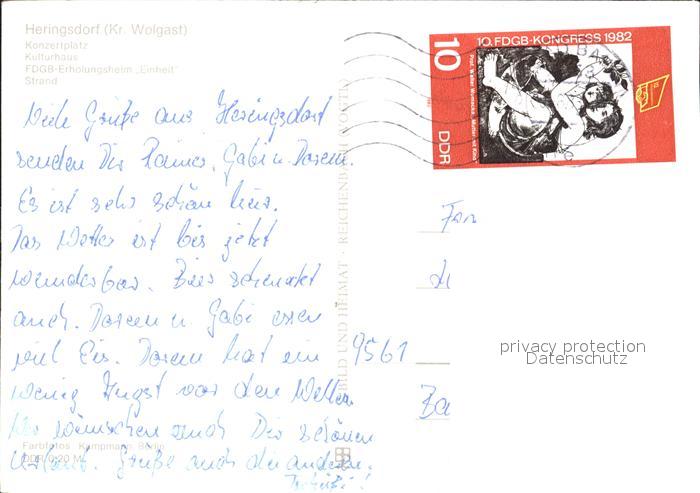 Heringsdorf (Kr. Wolgast)
Konzertplatz
Kulturhaus
FDGB-Erholungsheim „Einheit"
Strand
Viele Grüße aus Heringsdorf
senden Dir Rainer, Gabi u. Doreen.
Es ist sehr schön hier.
Das Wetter ist bis jetzt
wunderbar. Bier schmeckt
auch. Doreen u Gabi essen
viel Eis. Doreen hat ein
wenig Angst vor den Wellen.
Wir wünschen auch Dir schönen
Urlaub. Grüße auch die anderen.
Tschüß!
Farbfotos Kampmann, Berlin
DDR 0,20 M
BILD UND HEIMAT · REICHENBACH (VOGTL)
10. FDGB-KONGRESS 1982
10
DDR
Prof. Walter Womacka: Mutter mit Kind
Fam
9561
Ba
privacy protection
Datenschutz